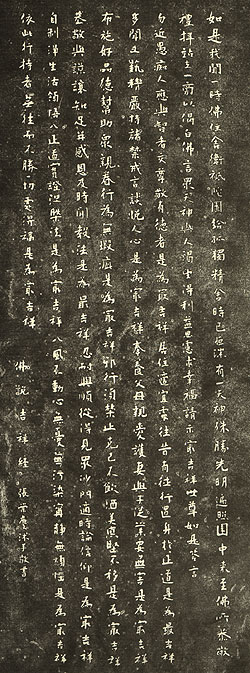 如是我聞一時佛住舍衛祇陀園給孤獨精舍時已夜深有一天神殊勝光明遍照園中來至佛所恭敬
禮拜站立一面以偈白佛言眾天神與人渴望得利益思慮求幸福請示最吉祥世尊如是答言
勿近愚癡人應與智者交尊敬有德者是為最吉祥居住適宜處往昔有德行置身於正道是為最吉祥
多聞工藝精嚴持諸禁戒言談悅人心是為最吉祥奉養父母親愛護妻與子從業要無害是為最吉祥
布施好品德幫助眾親眷行為無瑕疵是為最吉祥邪行須禁止克己不飲酒美德堅不移是為最吉祥
恭敬與謙讓知足並感恩及時聞教法是為最吉祥忍耐與順從得見眾沙門適時論信仰是為最吉祥
自制淨生活領悟八正道實證涅槃法是為最吉祥八風不動心無憂無污染寧靜無煩惱是為最吉祥
依此行持者無往而不勝一切處得福是為最吉祥
佛說吉祥經